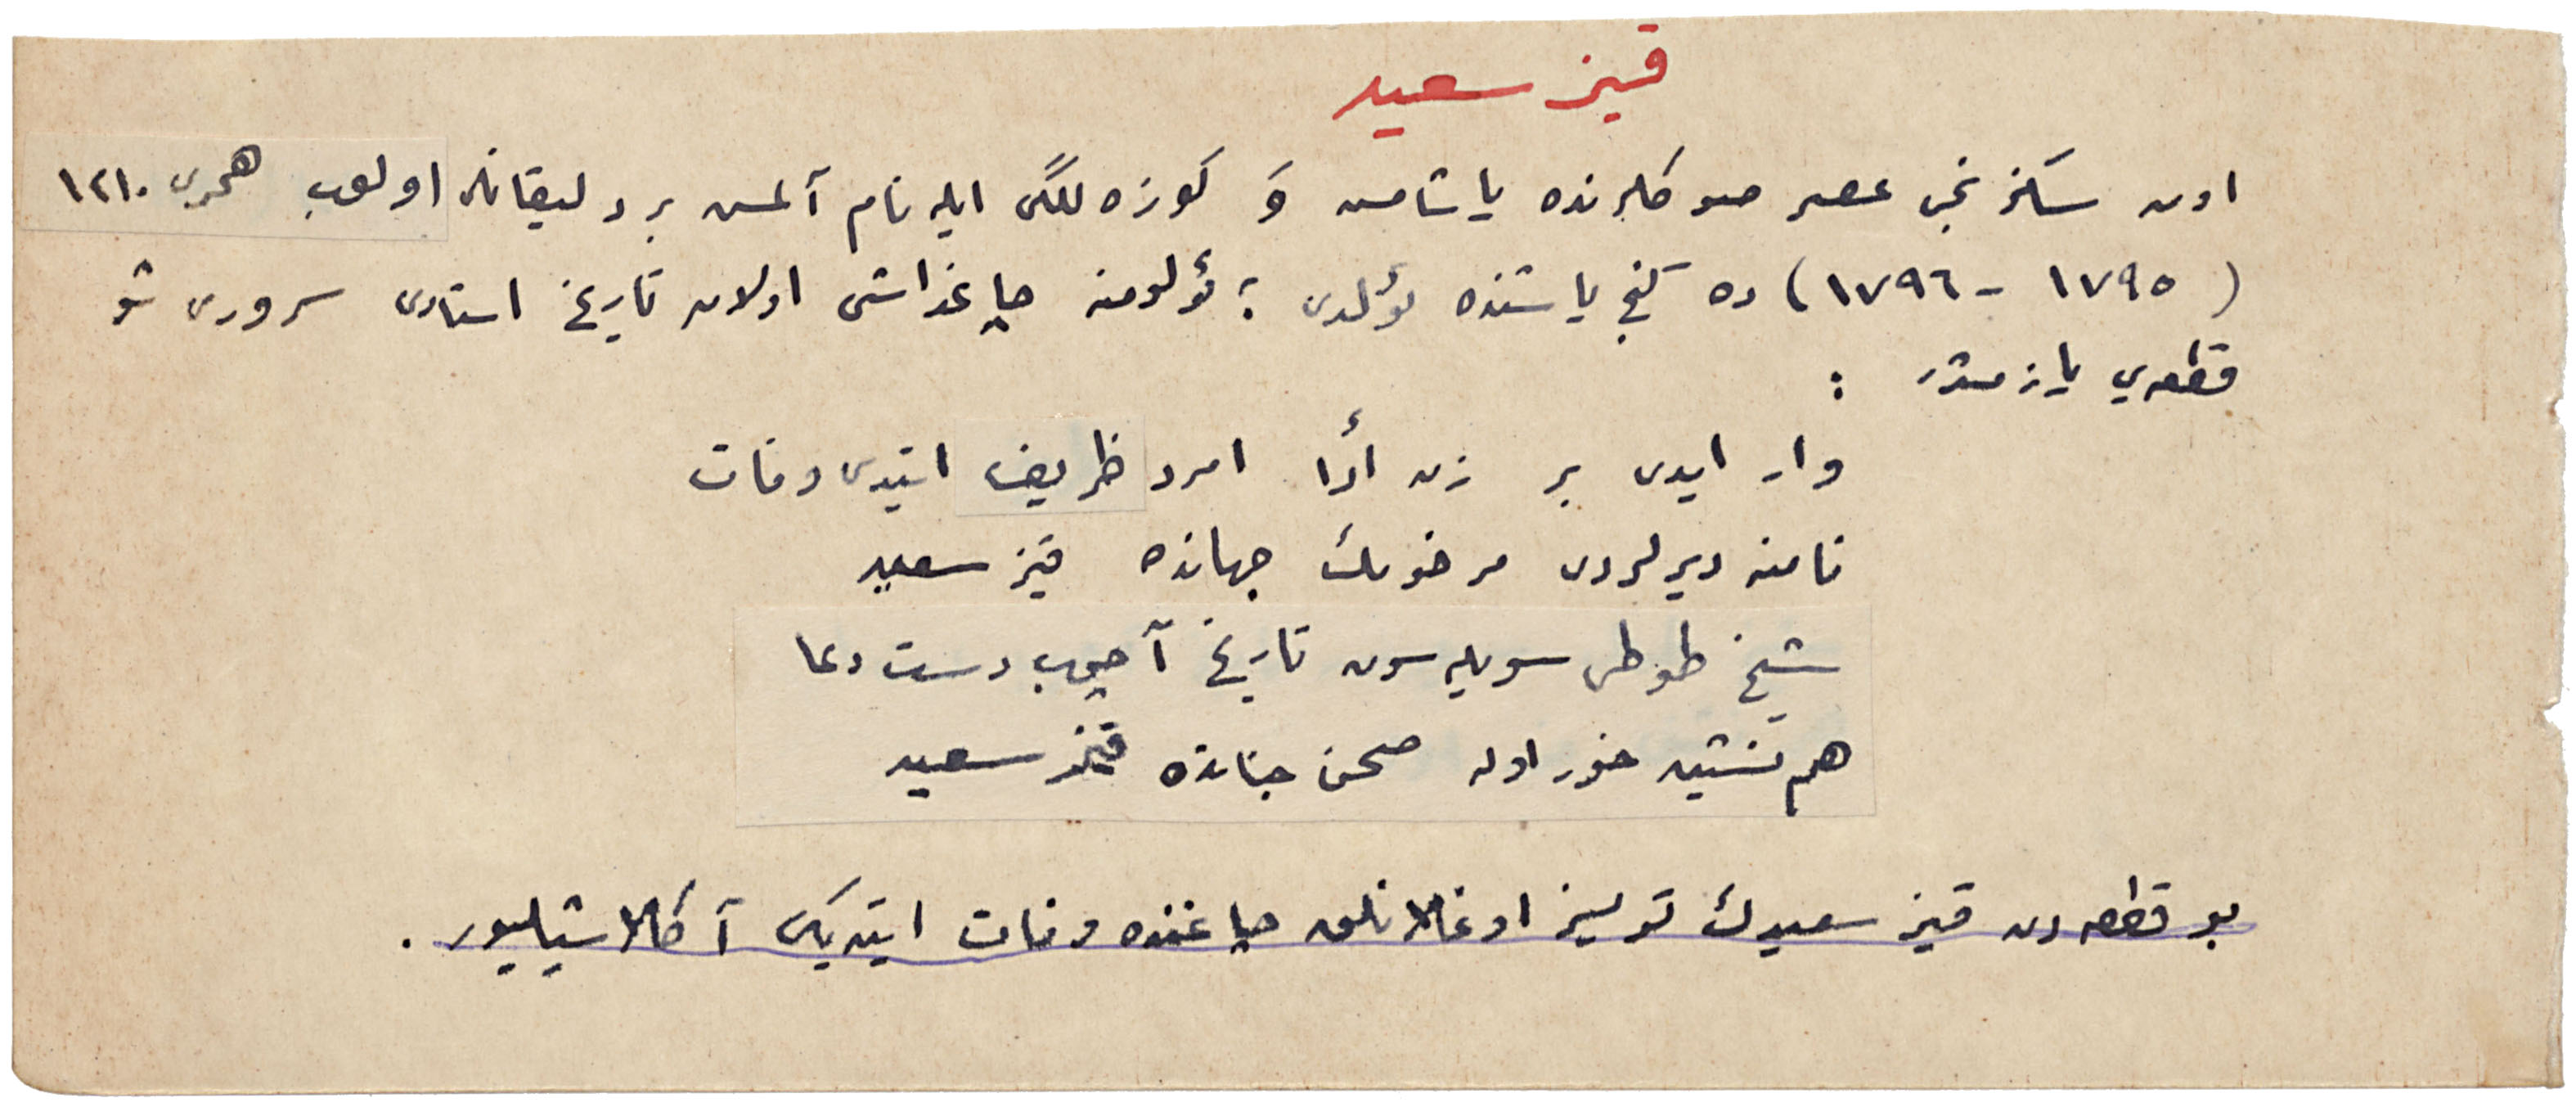 قیز سعید
اون سکزنجی عصر صوڭلرنده یاشامش وَ كوزه‌للگی ایله نام آلمش بر دلیقانلی اولوب هجری ١٢١٠
(١٧٩٥ - ١٧٩٦) ده گنج یاشنده ئولدی ؛ ئولومنه چاغداشی اولان تاریخ استادی سروری شو
قطعه‌یی یازمشدر :
وار ایدی بر زن أدا امرد ظریف ایتدی وفات
نامنه دیرلردی مرخومك جهانده قیز سعید
شیخ طوطی سویله‌سون تاریخ آچوب دست دعا
هم نشین حور اوله صحن جنانده قیز سعید
بو قطعه‌دن قیز سعیدك توسیز اوغلانلق چاغنده وفات ایتدیگی آڭلاشیلیور .